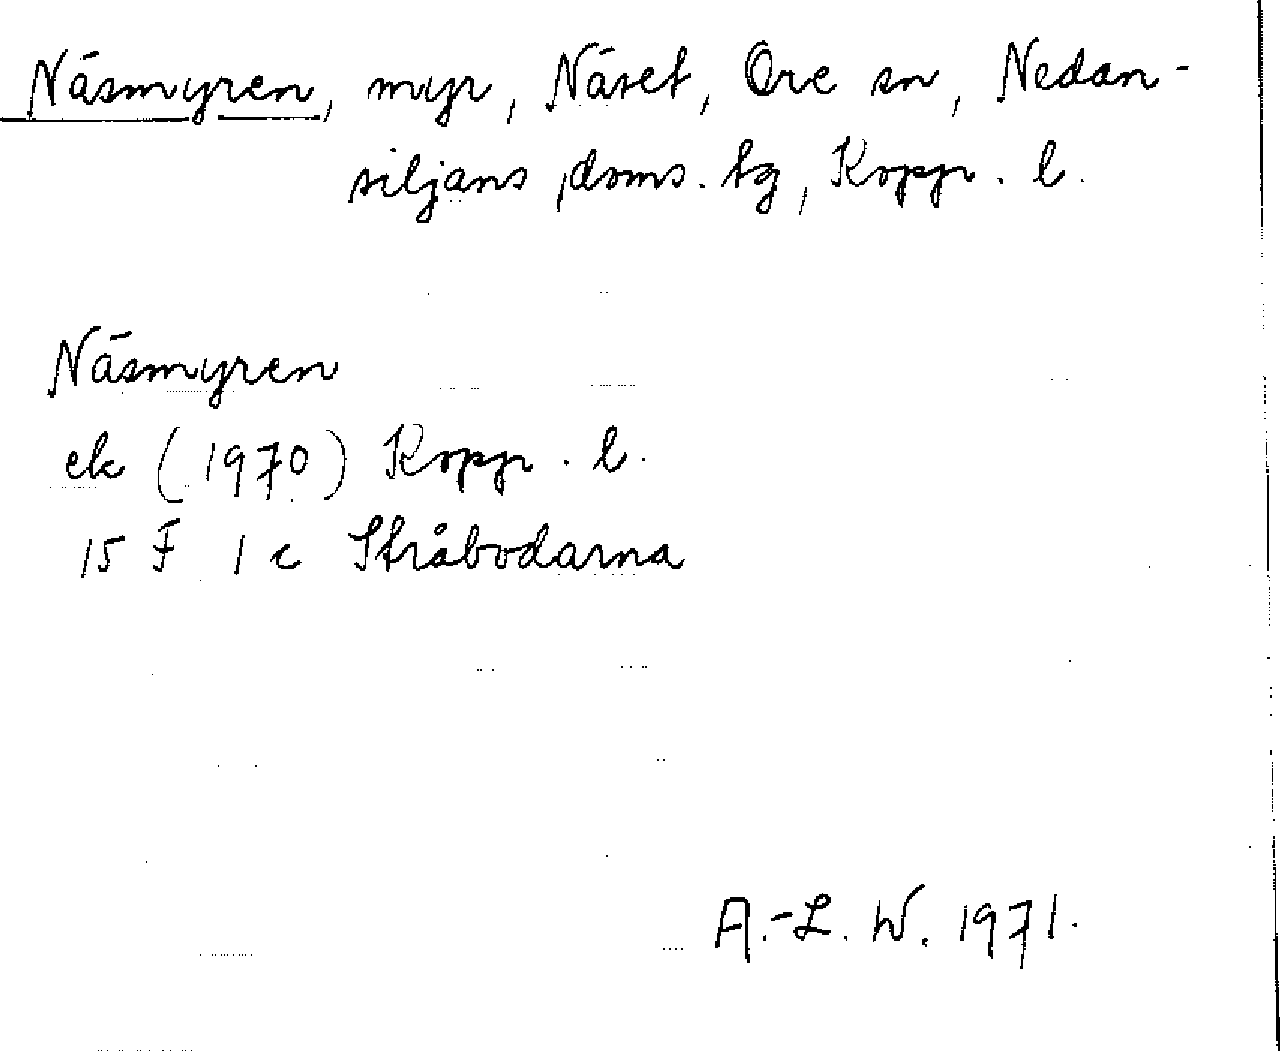 Näsmyren, myr, Näset, Ore sn, Nedan-
siljans doms. tg, Kopp. l.
Näsmyren
ek (1970) Kopp. l.
15 F 1 c Stråbodarna
A.-L. W. 1971.